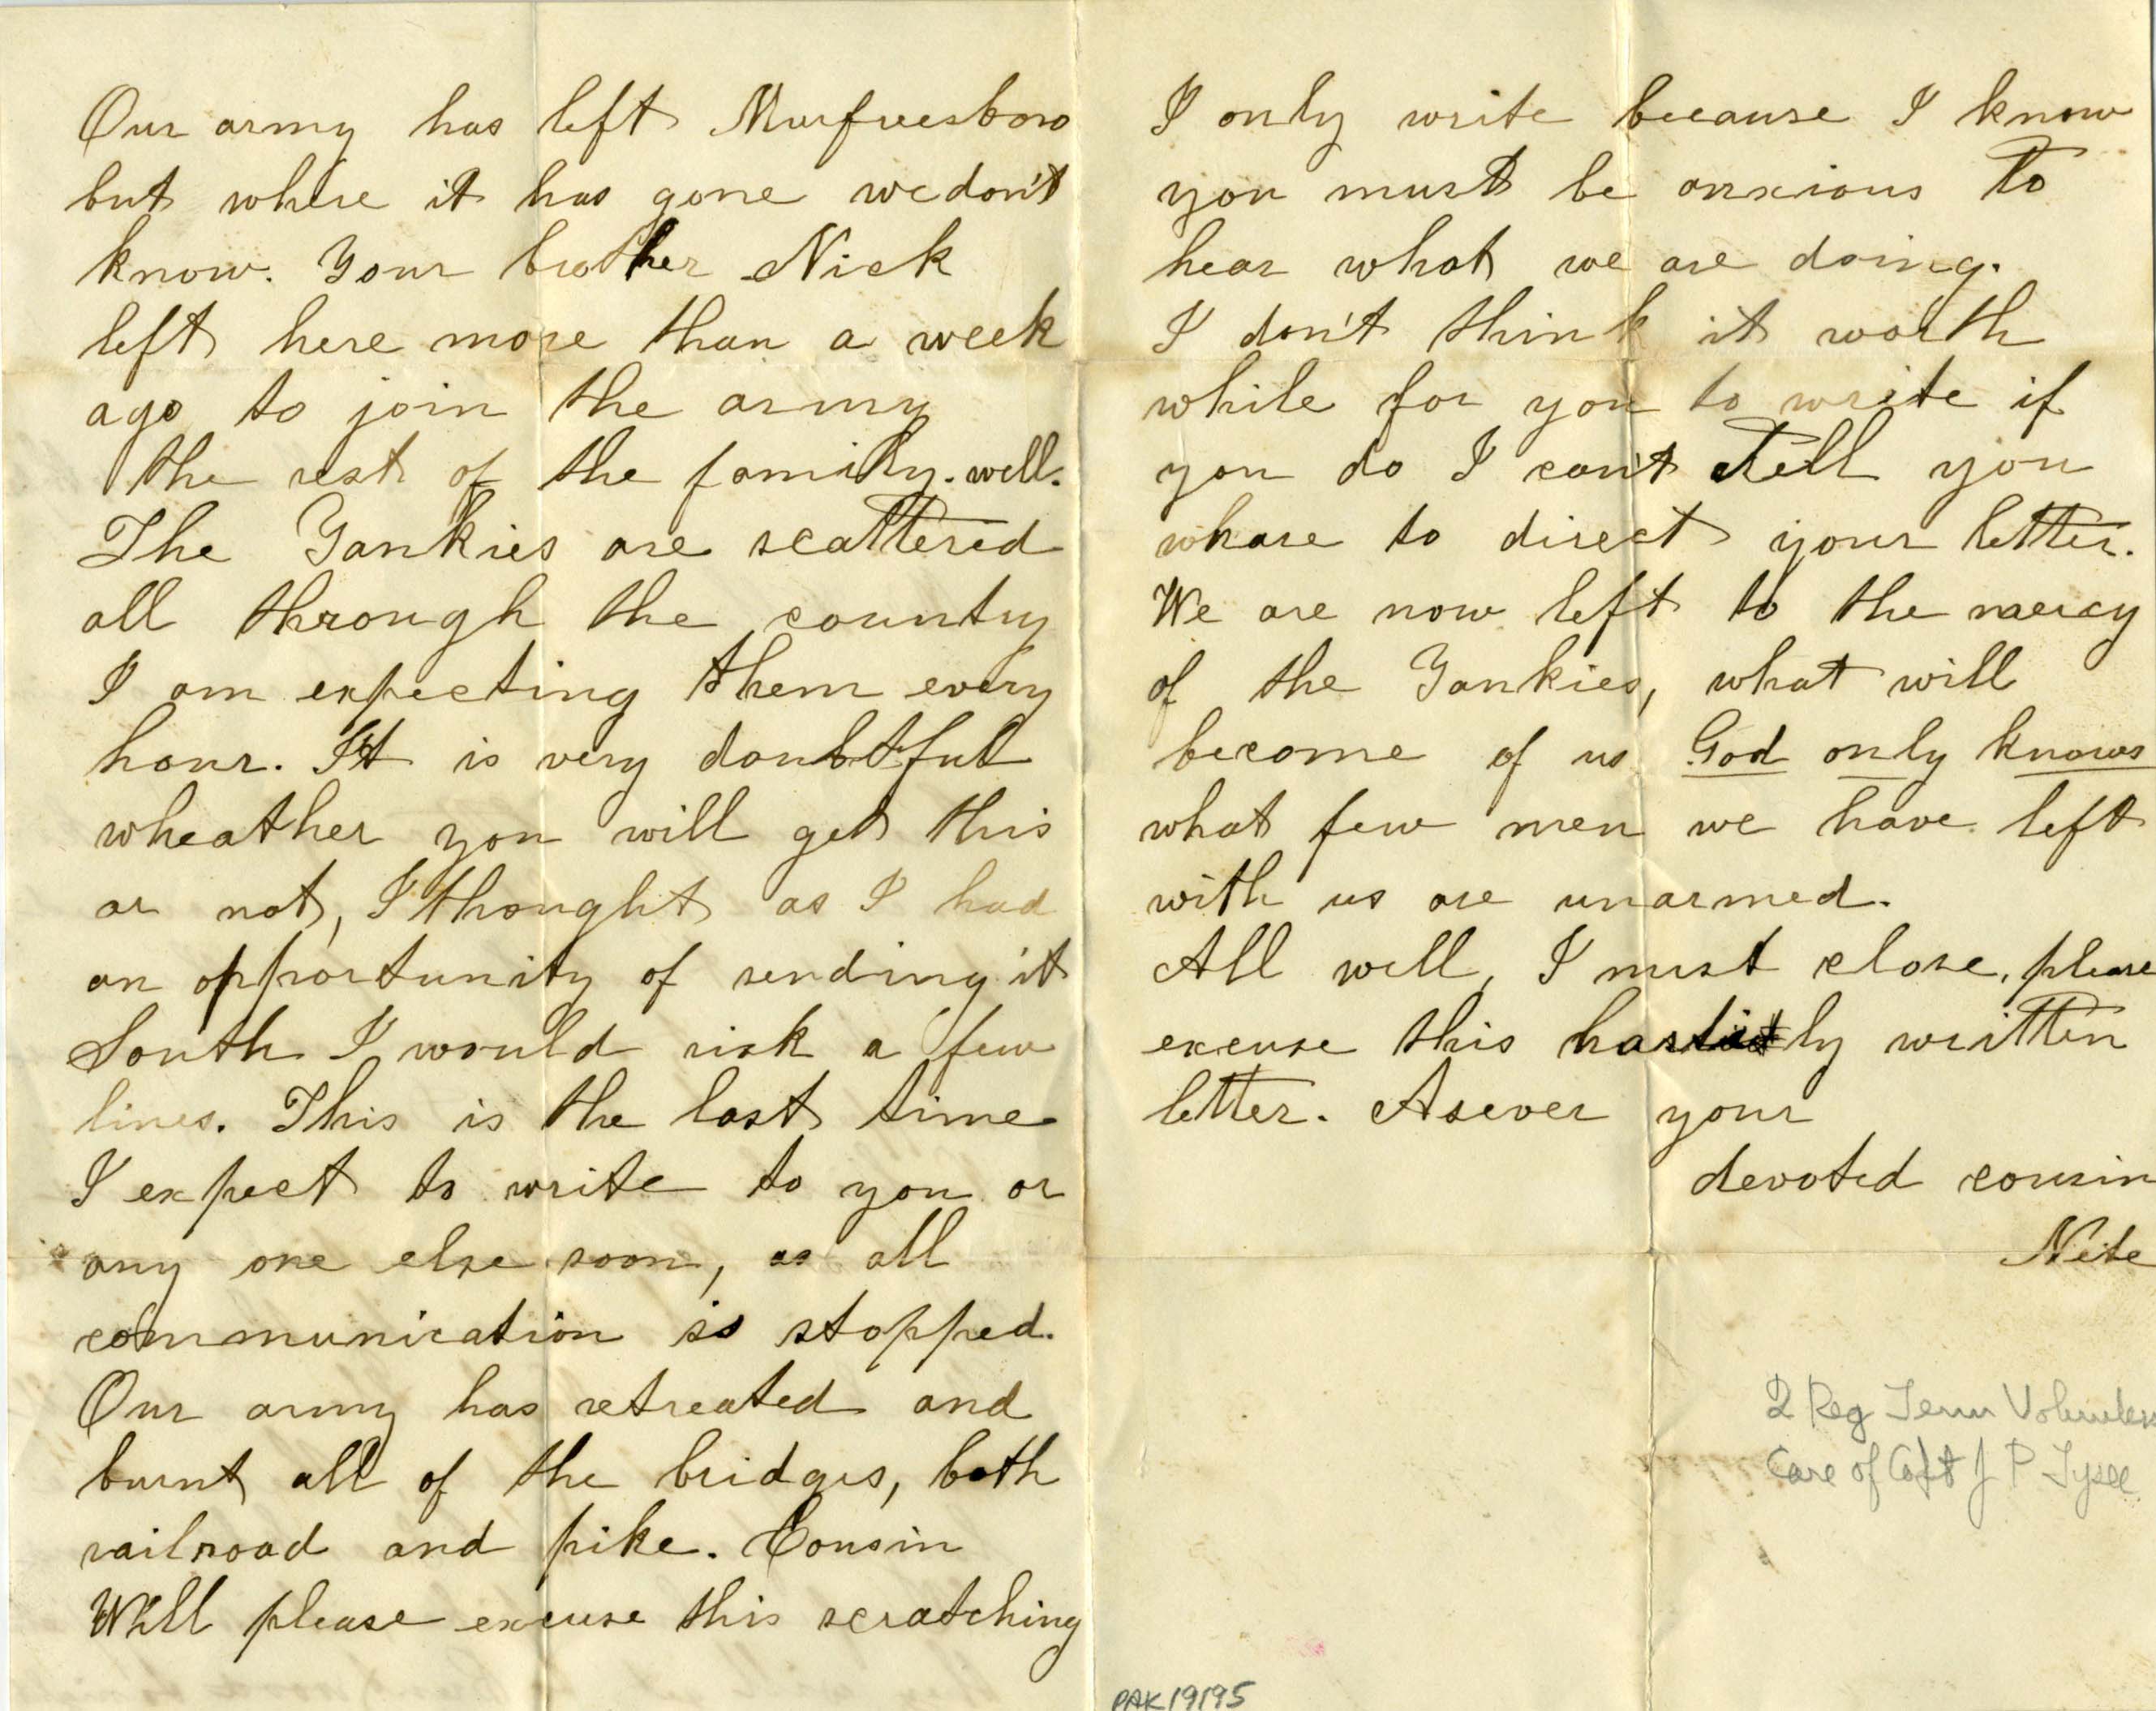 Our army has left Murfreesboro
but where it has gone we don't
know. Your brother Nick
left here more than a week
ago to join the army
the rest of the family. well.
The Yankies are scattered
all through the country
I am expecting them every
hour. It is very doubtful
wheather you will get this
or not, I thought as I had
an opportunity of sending it
South I would risk a few
lines. This is the last time
I expect to write to you or
any one else soon, as all
communication is stopped.
Our army has retreated and
burnt all of the bridges, both
railroad and pike. Cousin
Will please excuse this scratching
I only write because I know
you must be anxious to
hear what we are doing.
I don't think it worth
while for you to write if
you do I can't tell you
whare to direct your letter.
We are now left to the mercy
of the Yankies, what will
become of us God only knows
what few men we have left
with us are unarmed.
All well, I must close, please
excuse this hastily written
letter. As ever your
devoted cousin
Nete
2 Reg Tenn Volunteers
Care of Capt J P Tyree
PAK19195